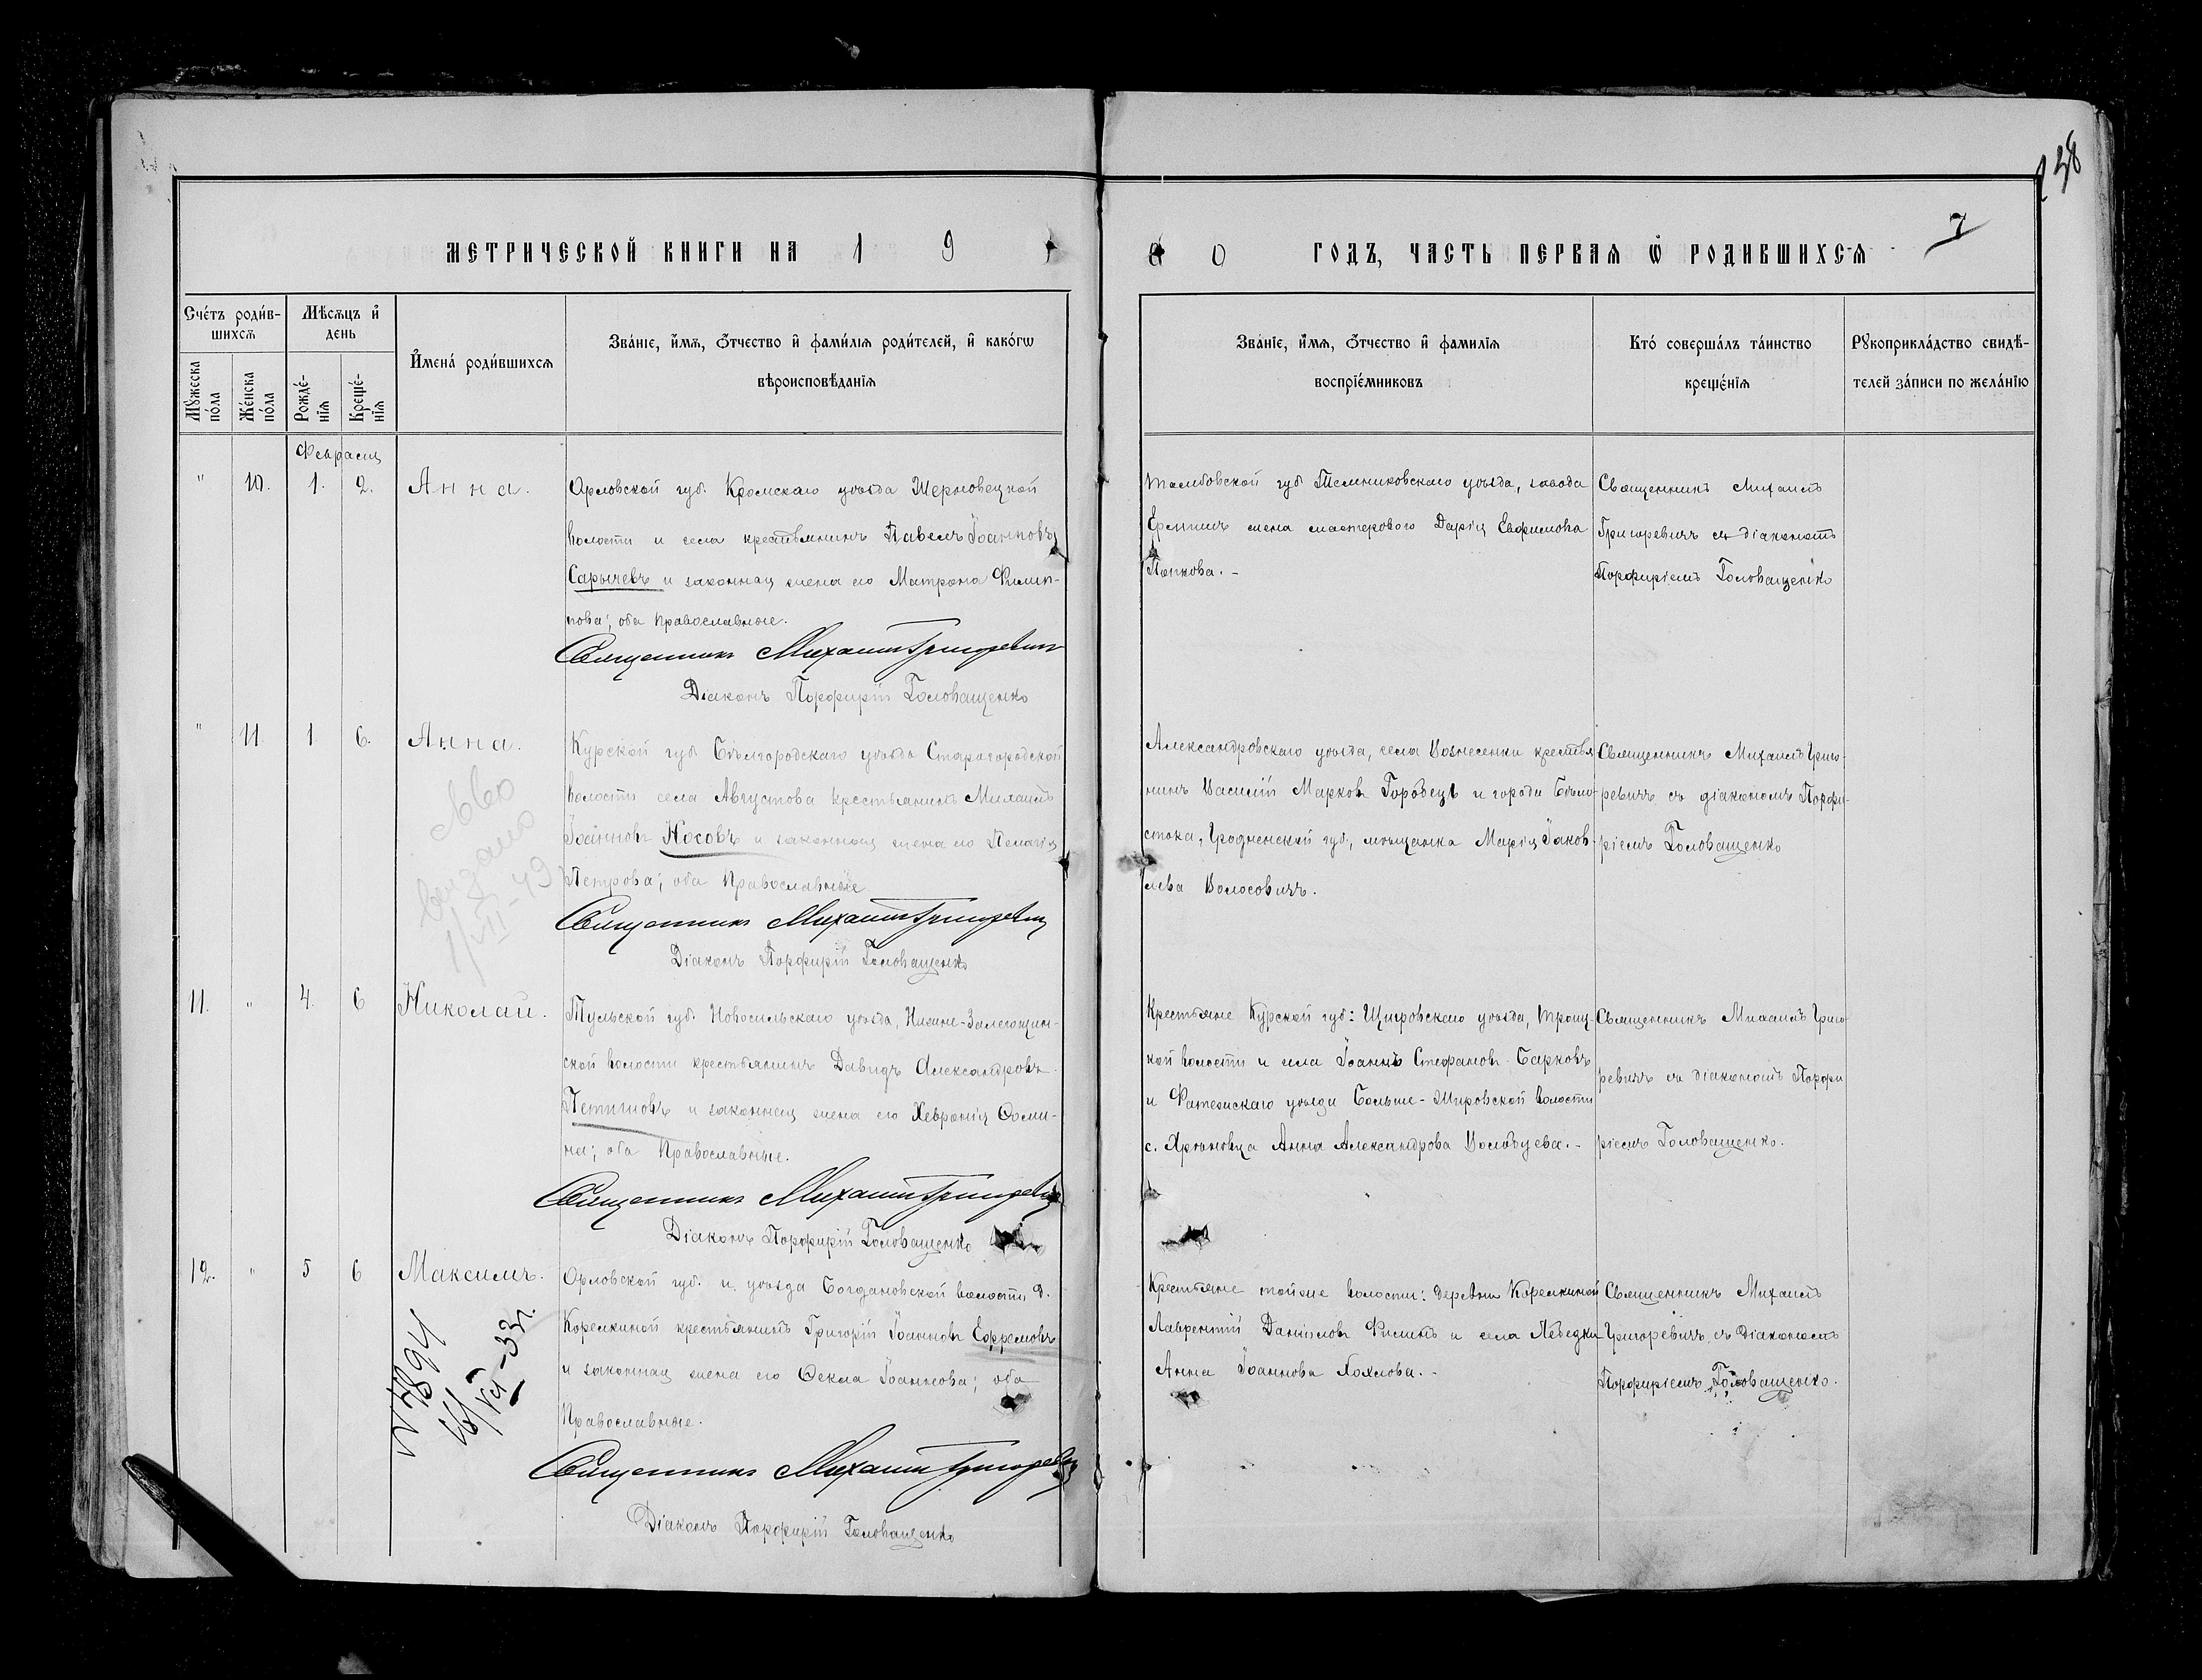 138
7
МЕТРИЧЕСКОЙ КНИГИ НА 1 9 0 0 ГОДЪ, ЧАСТЬ ПЕРВАЯ Ѿ РОДИВШИХСЯ
Счетъ родив-
шихся
Мѣсяцъ и
день
Мужеска
пола
Женска
пола
Рожде-
нія
Креще-
нія
Имена родившихся
Званіе, имя, отчество и фамилія родителей, и какогѡ
вѣроисповѣданія
Званіе, имя, отчество и фамилія
воспріемниковъ
Кто совершалъ таинство
крещенія
Рукоприкладство свидѣ-
телей записи по желанію
" 10. 1. 2. Анна.
Орловской губ. Кромскаго уѣзда Шерновецкой
волости и села крестьянинъ Павелъ Іоанновъ
Сарычевъ и законная жена его Матрона Филип-
пова; оба православные.
Священникъ Михаилъ Григоревичъ
Діаконъ Порфирій Головащенко
Тамбовской губ Темниковскаго уѣзда, завода
Еремшъ жена мастерового Дарія Евфимова
Попкова. -
Священникъ Михаилъ
Григоревичъ съ діакономъ
Порфиріемъ Головащенко
" 11 1 6. Анна.
Курской губ Бѣлгородскаго уѣзда Старогородской
волости села Августова крестьянинъ Михаилъ
Іоанновъ Носовъ и законная жена его Пелагія
Петрова; оба Православные
Священникъ Михаилъ Григоревичъ
Діаконъ Порфирій Головащенко
Александровскаго уѣзда, села Вознесенки крестья
нинъ Василій Марковъ Городецъ и города Бѣло-
стока, Гродненской губ., мѣщанка Марія Іаков-
лева Волосовичъ.
Священникъ Михаилъ Григо-
ревичъ съ діакономъ Порфи-
ріемъ Головащенко
1/VII-49
11. " 4. 6 Николай.
Тульской губ. Новосильскаго уѣзда, Нижне-Залегощин-
ской волости крестьянинъ Давидъ Александровъ
и законная жена его Хевронія Ѳоми-
на; оба Православные.
Священникъ Михаилъ Григоревичъ
Діаконъ Порфирій Головащенко
Крестьяне Курской губ: Щигровскаго уѣзда, Троиц-
кой волости и села Іоаннъ Стефановъ Барковъ
и Фатежскаго уѣзда Больше-Жировской волости
с. Анна Александрова Володуева. -
Священникъ Михаилъ Григо-
ревичъ съ діакономъ Порфи
ріемъ Головащенко.
12. " 5 6 Максимъ.
Орловской губ. и уѣзда Богдановской волости д.
Корелкиной крестьянинъ Григорій Іоанновъ Ефремовъ
и законная жена его Ѳекла Іоаннова; оба
Православные.
Священникъ Михаилъ Григоревичъ
Діаконъ Порфирій Головащенко
Крестьяне тойже волости: деревни Корелкиной
Лаврентій Даніиловъ Филинъ и села Лебедки
Анна Іоаннова Хохлова. -
Священникъ Михаилъ
Григоревичъ съ Діакономъ
Порфиріемъ Головащенко.
N 7894